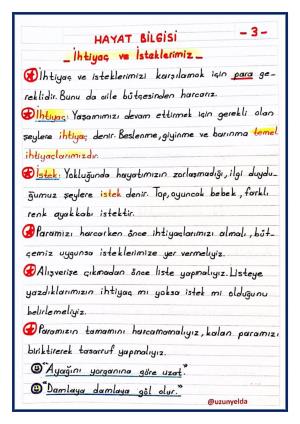 HAYAT BİLGİSİ
- 3 -
İhtiyaç ve İsteklerimiz
İhtiyaç ve isteklerimizi karşılamak için para ge-
reklidir. Bunu da aile bütçesinden harcarız.
İhtiyaç: Yaşamımızı devam ettirmek için gerekli olan
şeylere ihtiyaç denir. Beslenme, giyinme ve barınma temel
ihtiyaçlarımızdır.
İstek: Yokluğunda hayatımızın zorlaşmadığı, ilgi duydu-
ğumuz şeylere istek denir. Top, oyuncak bebek, farklı
renk ayakkabı istektir.
Paramızı harcarken önce ihtiyaçlarımızı almalı, büt-
çemiz uygunsa isteklerimize yer vermeliyiz.
Alışverişe çıkmadan önce liste yapmalıyız. Listeye
yazdıklarımızın ihtiyaç mı yoksa istek mi olduğunu
belirlemeliyiz.
Paramızın tamamını harcamamalıyız, kalan paramızı
biriktirerek tasarruf yapmalıyız.
"Ayağını yorganına göre uzat."
"Damlaya damlaya göl olur."
@uzunyelda